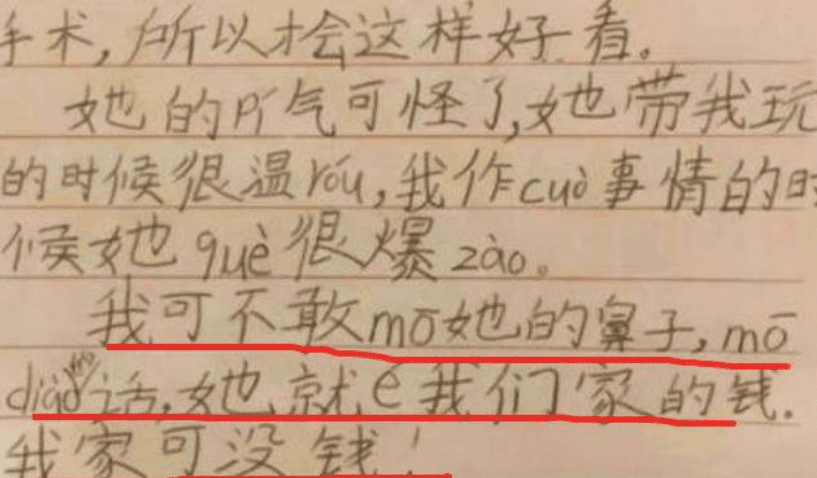 手术,所以才会这样好看。
她的pí气可怪了,她带我玩
的时候很温róu,我作cuò事情的时
候她què很爆zào。
我可不敢mō她的鼻子,mō
diào话,她就é我们家的钱.
我家可没钱!